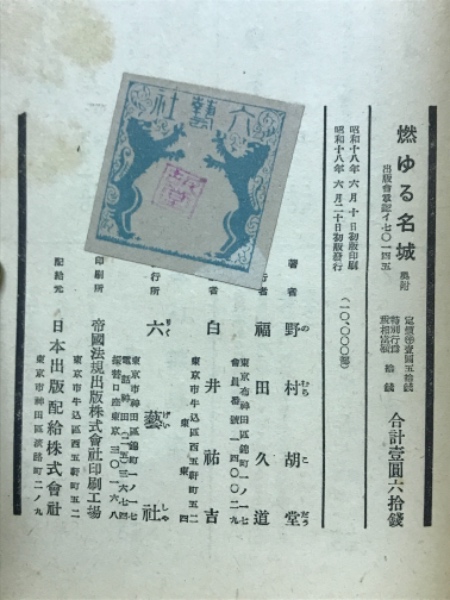 燃ゆる名城 奥附
出版會承認イ七〇一四五
合計壹圓六拾錢
昭和十八年 六月 十 日初版印刷
昭和十八年 六月二十日初版發行
(一〇、〇〇〇部)
著者 野村胡堂
のむらこだう
行者 福田久道
東京市神田區錦町一ノ一七
會員番號一四〇〇二九
者 白井祐吉
東京市牛込區西五軒町五二
東 東 四
行所 六藝社
りくげいしや
東京市神田區錦町一ノ一七
電話神田(25)三六七四
振替口座東京三〇一六八
印刷所 帝國法規出版株式會社印刷工場
東京市牛込區西五軒町五二
配給元 日本出版配給株式會社
東京市神田區淡路町二ノ九
六藝社